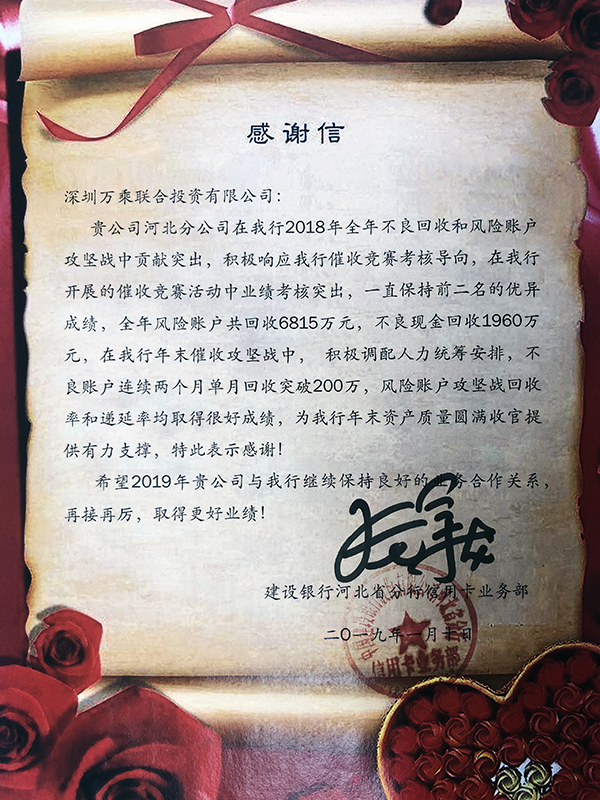 感谢信
深圳万乘联合投资有限公司：
贵公司河北分公司在我行2018年全年不良回收和风险账户
攻坚战中贡献突出，积极响应我行催收竞赛考核导向，在我行
开展的催收竞赛活动中业绩考核突出，一直保持前二名的优异
成绩，全年风险账户共回收6815万元，不良现金回收1960万
元，在我行年末催收攻坚战中， 积极调配人力统筹安排，不
良账户连续两个月单月回收突破200万，风险账户攻坚战回收
率和递延率均取得很好成绩，为我行年末资产质量圆满收官提
供有力支撑，特此表示感谢！
希望2019年贵公司与我行继续保持良好的业务合作关系，
再接再厉，取得更好业绩！
建设银行河北省分行信用卡业务部
二〇一九年一月十日
信用卡业务部